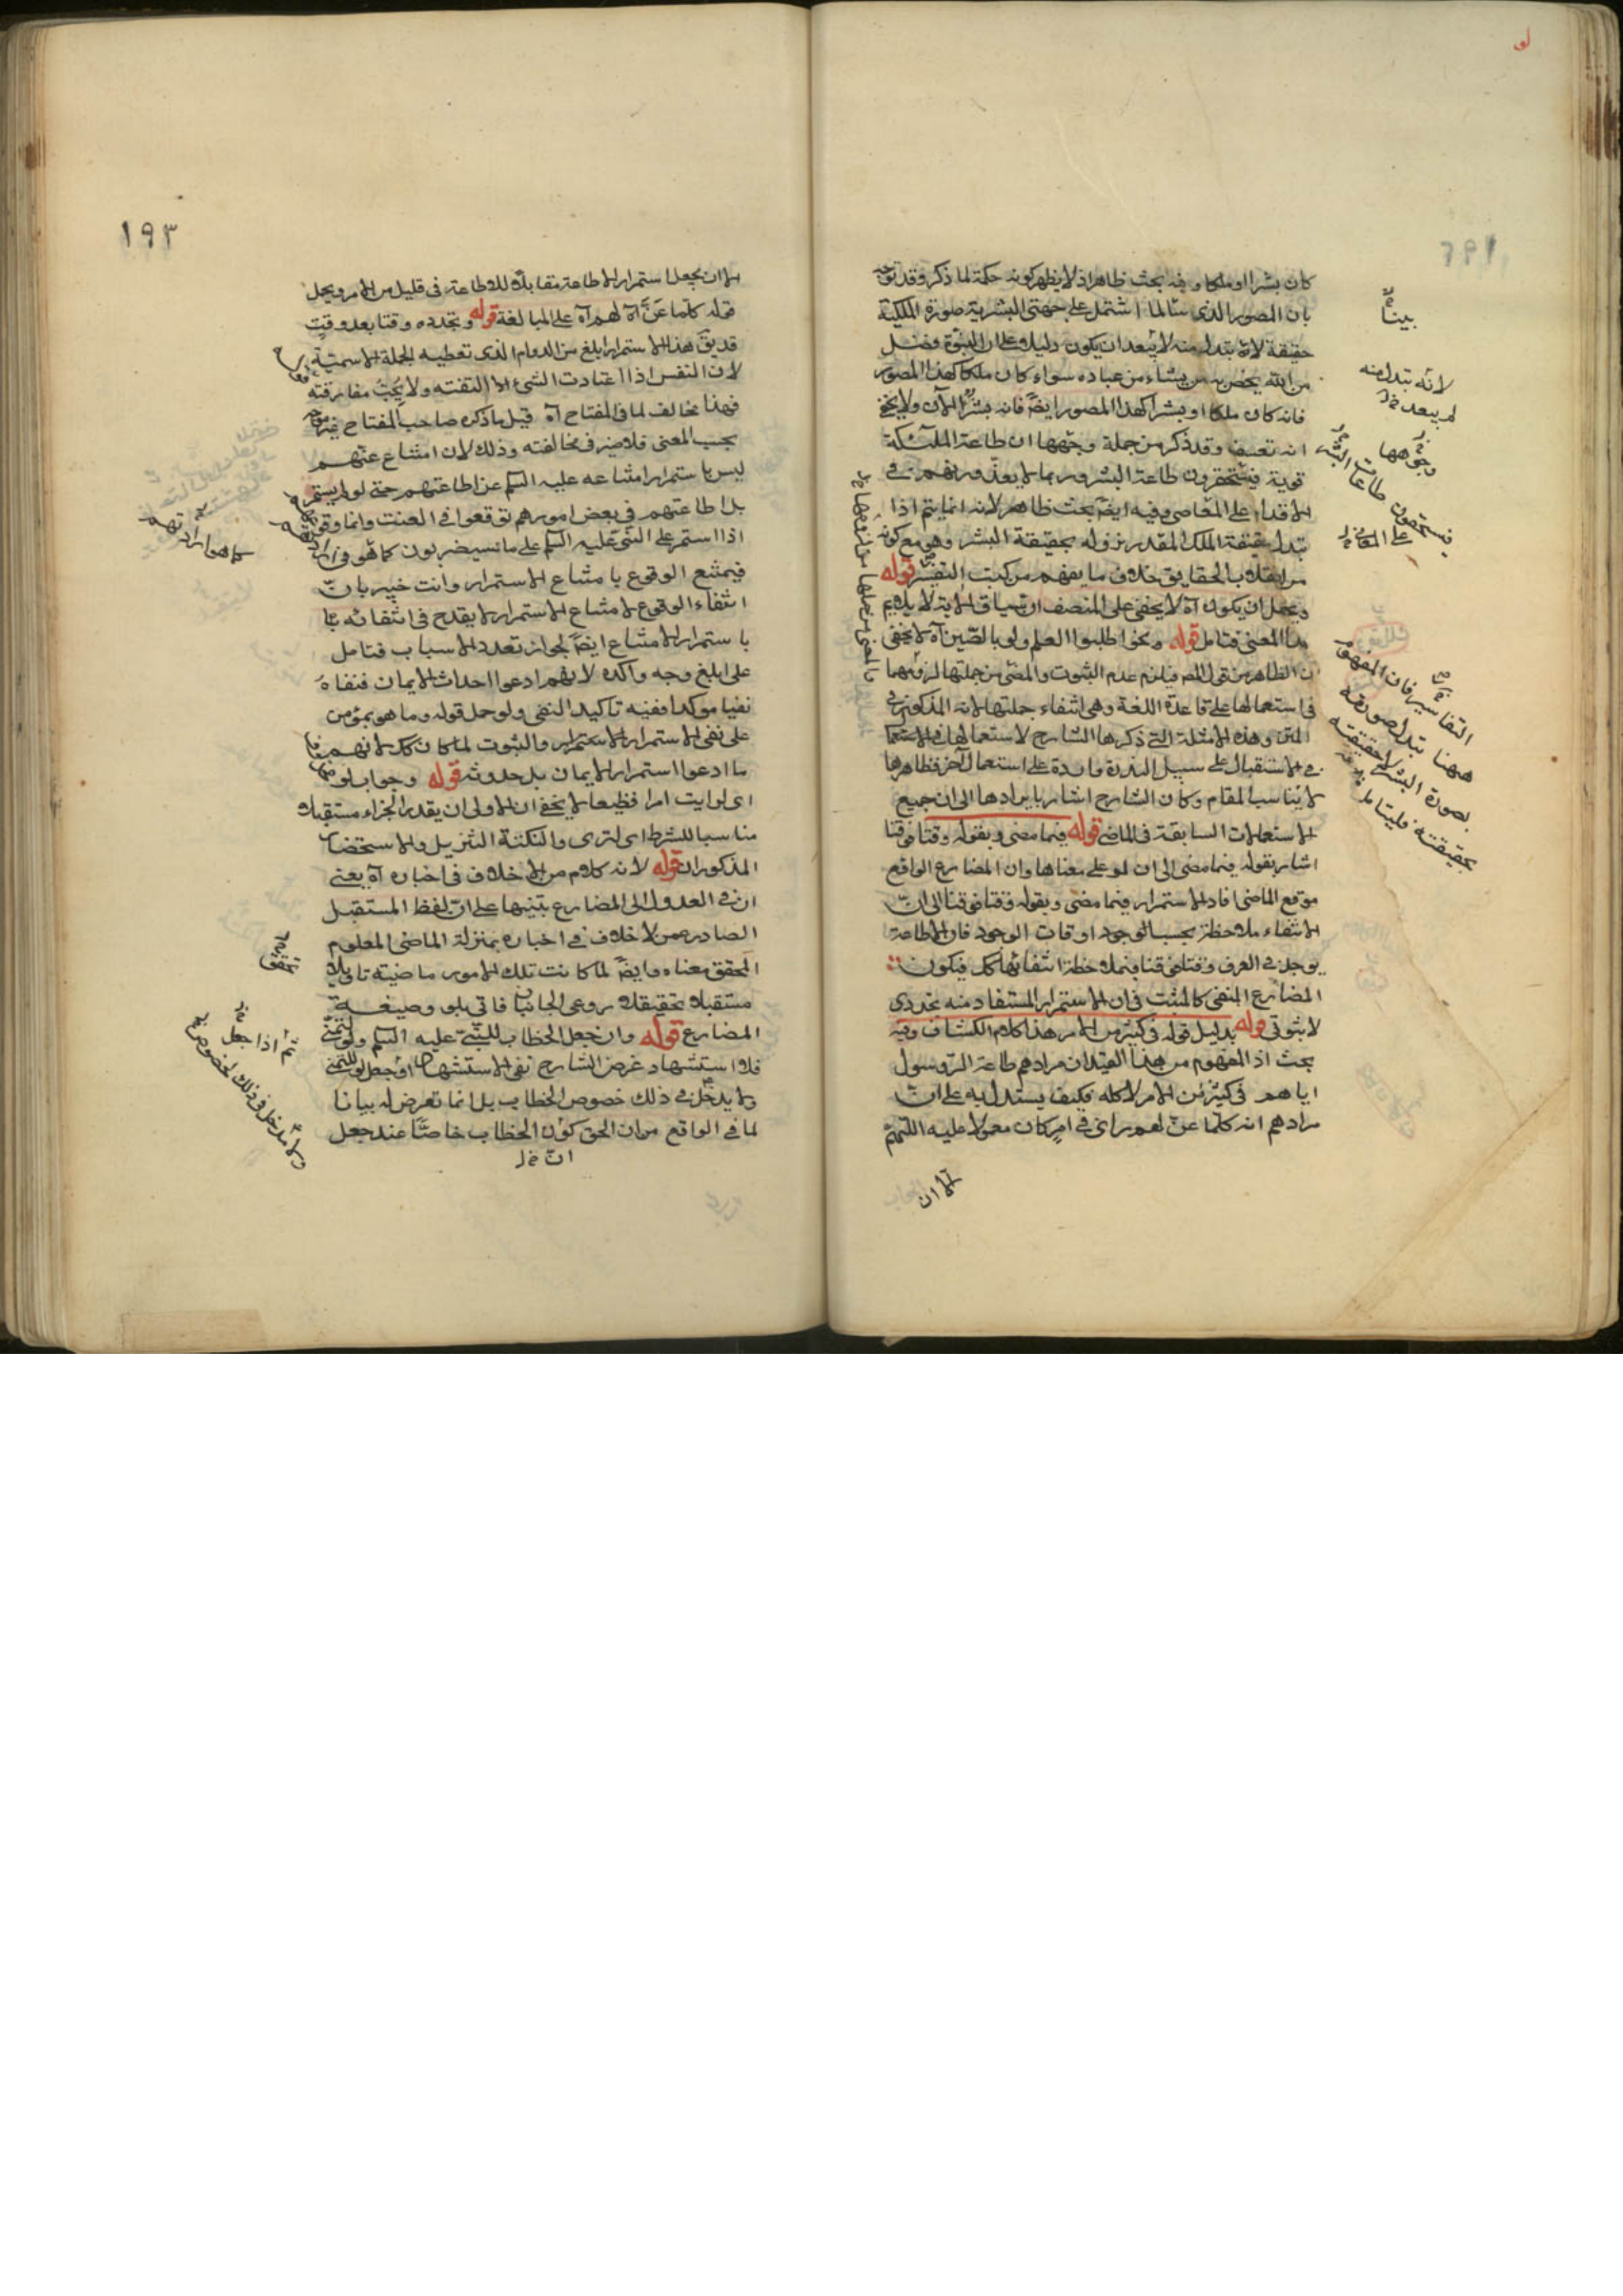 كان بشرا او ملكا وفيه بحث ظاهر اذ لا يظهر كونه حكمة لما ذكر وقد توجه
بان المصور الذي سالما اشتمل على جهتي البشرية صورة الملكية
حقيقة لانه بتدل منه لا يبعد ان يكون دليلا على ان النبوة فضل
من الله يخص به من يشاء من عباده سواء كان ملكا كهذا المصور
فانه كان ملكا او بشرا كهذا المصور ايضا فانه بشر الآن ولا يخفى
انه تعسف وقد ذكر من جملة وجهها ان طاعة الملئكة
قوية فيستحقرون طاعة البشر وربما لا يعذرونهم في
الاقدام على المعاصي وفيه ايضا بحث ظاهر لانه انما يتم اذا
تبدل حقيقة الملك المقدر نزوله بحقيقة البشر وهو مع كونه
من انقلاب الحقايق خلاف ما يفهم من كتب التفسير قوله
ويحتمل ان يكون آه لا يخفى على المنصف ان سياق الاية لا يلايم
هذا المعنى فتامل قوله ونحو اطلبوا العلم ولو بالصين آه لا يخفى
ان الظاهر من قول المص فيلزم عدم الثبوت والمضي من جملتها لزومهما
في استعمالها على قاعدة اللغة وهي انتفاء جملتها لانه المذكور في
المتن وهذه الامثلة التي ذكرها الشارح لاستعمالها في الاستعمال
في الاستقبال على سبيل الندرة واردة على استعمال آخر فظاهرها
لا يناسب المقام وكأن الشارح اشار بايرادها الى ان جميع
الاستعمالات السابقة في الماضي قوله فيما مضى وبقوله وقتا فوقتا
اشار بقوله فيما مضى الى ان لو على معناها وان المضارع الواقع
موقع الماضي افاد الاستمرار فيما مضى وبقوله وقتا فوقتا الى ان
الانتفاء ملاحظة بحسب الوجود اوقات الوجود فان الاطاعة
يوجد في العرف وقتا فوقتا فيملاحظة انتفائها كك فيكون
المضارع المنفي كالمثبت في ان الاستمرار المستفاد منه تجددي
لا ثبوتي قوله بدليل قوله في كثير من الامر هذا كلام الكشاف وفيه
بحث اذ المفهوم من هذا القيد ان مرادهم طاعة الرسول
اياهم في كثير من الامر لا كله فكيف يستدل به على ان
مرادهم انه كلما عن لهم راى في امر كان معمولا عليه اللهم
الا ان
بينا
لانه تبدل منه
لم يبعد
وجوهها
فيستحقون طاعات البشر
على المعاصي
التفاسير فان المفهوم
ههنا تبدل صورته
بصورة البشر لا حقيقته
بحقيقته فليتامل
١٩٣
الا ان يجعل استمرار الاطاعة مقابلا للاطاعة في قليل من الامر ويحمل
قوله كلما عن آه لهم آه على المبالغة قوله وتجدده وقتا بعد وقت
قد يق هذا الاستمرار ابلغ من الدوام الذي تعطيه الجملة الاسمية
لان النفس اذا اعتادت الشيء الا الفته ولا يحب مفارقته
فهذا مخالف لما في المفتاح آه قيل ما ذكره صاحب المفتاح غير موجه
بحسب المعنى فلا ضير في مخالفته وذلك لان امتناع عنتهم
ليس باستمرار امتناعه عليه السلم عن اطاعتهم حتى لو لم يستمر
بل اطاعتهم في بعض امورهم توقعوا في العنت وانما وقوع
اذا استمر على النبي عليه السلم على ما يستصوبون كما هو في
فيمتنع الوقوع بامتناع الاستمرار وانت خبير بان
انتفاء الوقوع لامتناع الاستمرار لا يقدح في انتفائه
باستمرار الامتناع ايضا لجواز تعدد الاسباب فتامل
على ابلغ وجه وآكده لانهم ادعوا احداث الايمان فنفاه
نفيا موكدا ففيه تاكيد النفي ولو حمل قوله وما هو بمؤمن
على نفي الاستمرار والثبوت لما كان كك لانهم
ما ادعوا استمرار الايمان بل حدوثه قوله وجواب لو
اي لرايت امرا فظيعا لا يخفى ان الاولى ان يقدر الجزاء مستقبلا
مناسبا للشرط اي لترى والنكتة التنزيل والاستحضار
المذكوران قوله لانه كلام من لا خلاف في اخباره آه يعني
ان في العدول الى المضارع تنبيها على ان لفظ المستقبل
الصادر عمن لا خلاف في اخباره بمنزلة الماضي المعلوم
المحقق معناه وايضا لما كانت تلك الامور ماضية تاويلا
مستقبلا تحقيقا روعي الجانبان فاتي بلو وصيغة
المضارع قوله وان جعل الخطاب للنبي عليه السلم ولو للتمني
فلا استشهاد غرض الشارح نفي الاستشهاد او جعل لو للتمني
ولا يدخل في ذلك خصوص الخطاب بل انما تعرض له بيانا
لما في الواقع من ان الحق كون الخطاب خاصا عند جعل
كما هو ارادتهم
تحقق
تم اذا جعل
ولا مدخل في ذلك لخصوص